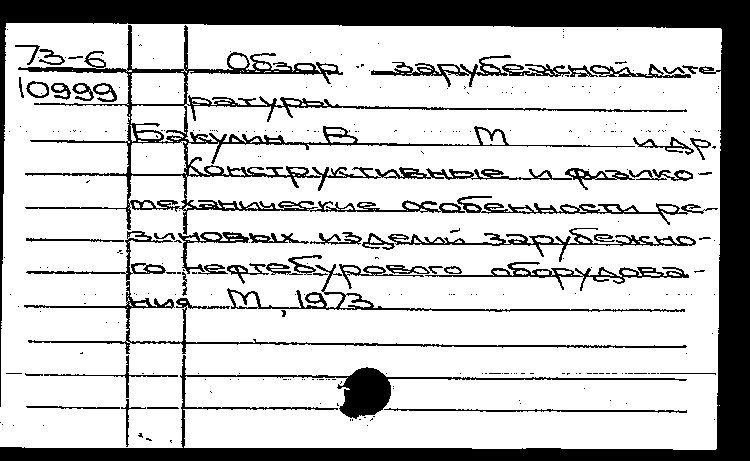 73-6 Обзор зарубежной лите-
10999 ратуры.
Бакулин, В М и др.
Конструктивные и физико-
механические особенности ре-
зиновых изделий зарубежно-
го нефтебурового оборудова-
ния М, 1973.